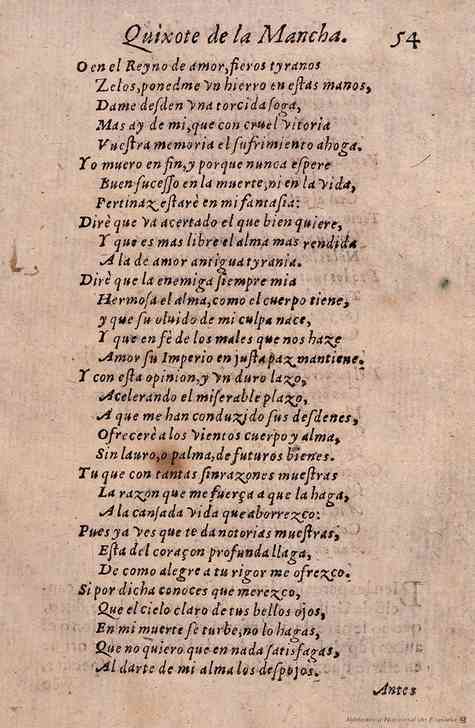 Quixote de la Mancha. 54
O en el Reyno de amor, fieros tyranos
Zelos, ponedme vn hierro en estas manos,
Dame desden vna torcida soga,
Mas ay de mi, que con cruel vitoria
Vuestra memoria el sufrimiento ahoga.
Yo muero en fin, y porque nunca espere
Buen sucesso en la muerte, ni en la vida,
Pertinaz estarè en mi fantasia:
Dirè que va acertado el que bien quiere,
Y que es mas libre el alma mas rendida
A la de amor antigua tyrania.
Dirè que la enemiga siempre mia
Hermosa el alma, como el cuerpo tiene,
y que su oluido de mi culpa nace,
Y que en fè de los males que nos haze
Amor su Imperio en justa paz mantiene.
Y con esta opinion, y vn duro lazo,
Acelerando el miserable plazo,
A que me han conduzido sus desdenes,
Ofrecerè a los vientos cuerpo y alma,
Sin lauro, o palma, de futuros bienes.
Tu que con tantas sinrazones muestras
La razon que me fuerça a que la haga,
A la cansada vida que aborrezco:
Pues ya ves que te da notorias muestras,
Esta del coraçon profunda llaga,
De como alegre a tu rigor me ofrezco.
Si por dicha conoces que merezco,
Que el cielo claro de tus bellos ojos,
En mi muerte se turbe, no lo hagas,
Que no quiero que en nada satisfagas,
Al darte de mi alma los despojos.
Antes
Biblioteca Nacional de España